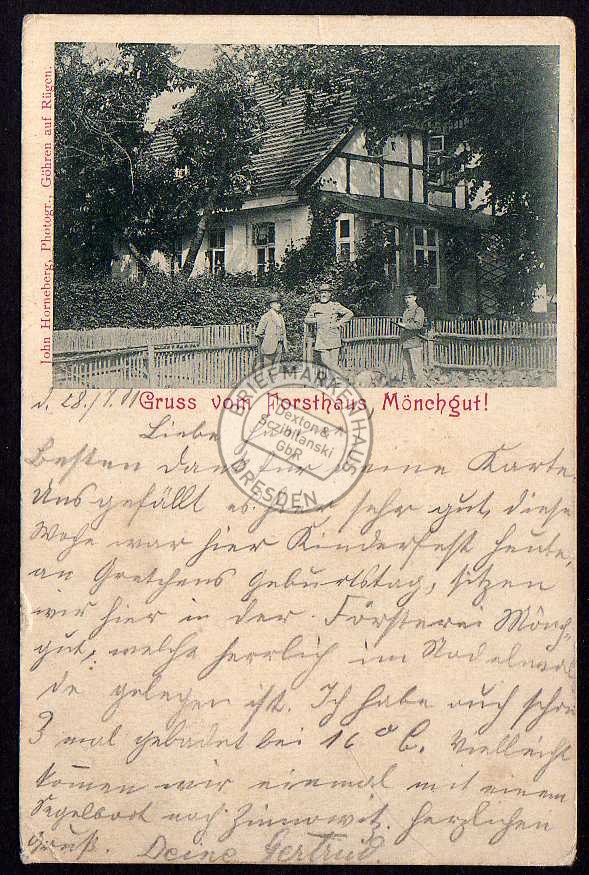 John Horneberg, Photogr., Göhren auf Rügen.
Gruss vom Forsthaus, Mönchgut!
BRIEFMARKENHAUS
Sexton &
Sczibilanski
GbR
DRESDEN
d. 28./7.01
Liebe
Besten Dank für Deine Karte.
Uns gefällt es hier sehr gut, diese
Woche war hier Kinderfest heute,
an Gretchens Geburtstag, sitzen
wir hier in der Försterei Mönch-
gut, welche herrlich im Nadelwal
de gelegen ist. Ich habe auch schon
3 mal gebadet bei 16° C. Vielleicht
kommen wir einmal mit einem
Segelboot nach Zinnowitz. Herzlichen
Gruß. Deine Gertrud.